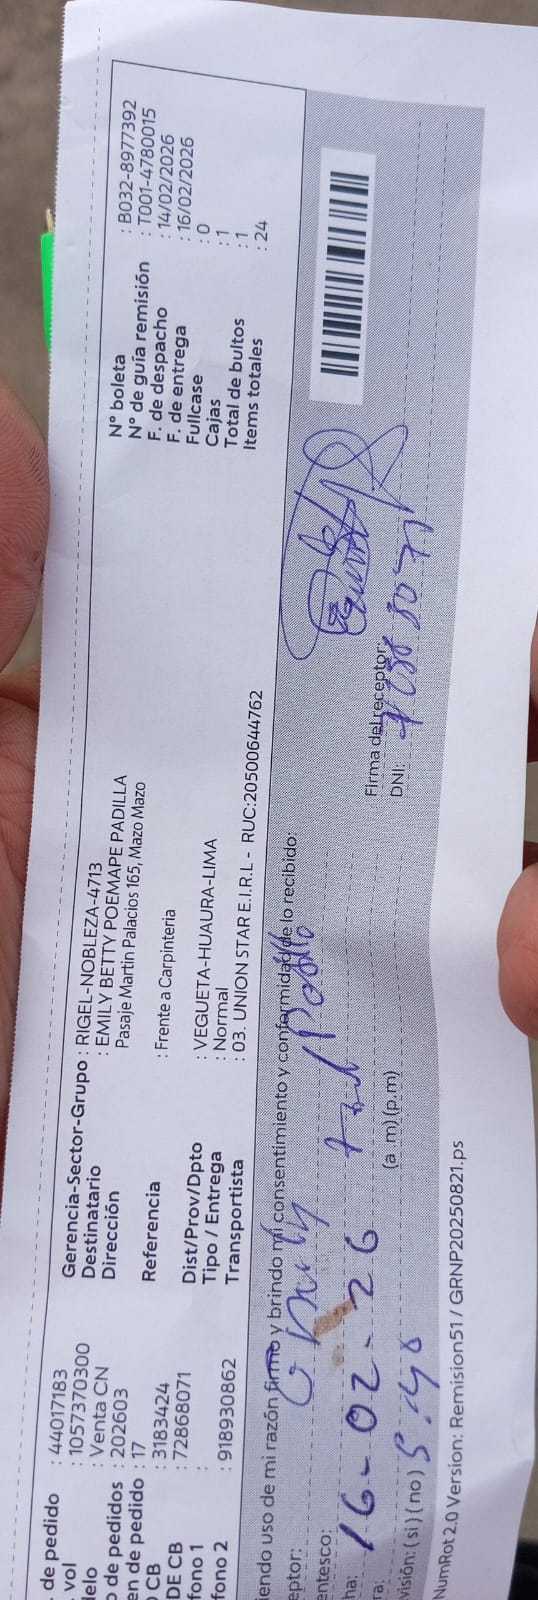 de pedido : 44017183
vol : 1057370300
delo : Venta CN
o de pedidos : 202603
en de pedido : 17
CB : 3183424
DE CB : 72868071
fono 1 :
fono 2 : 918930862
Gerencia-Sector-Grupo : RIGEL-NOBLEZA-4713
Destinatario : EMILY BETTY POEMAPE PADILLA
Dirección Pasaje Martin Palacios 165, Mazo Mazo
Referencia : Frente a Carpinteria
Dist/Prov/Dpto : VEGUETA-HUAURA-LIMA
Tipo / Entrega : Normal
Transportista : 03. UNION STAR E.I.R.L - RUC:20500644762
N° boleta : B032-8977392
N° de guía remisión : T001-4780015
F. de despacho : 14/02/2026
F. de entrega : 16/02/2026
Fullcase : 0
Cajas : 1
Total de bultos : 1
Items totales : 24
iendo uso de mi razón firmo y brindo mi consentimiento y conformidad de lo recibido:
eptor: Emily
entesco:
ha: 16-02-26
ra: 5:40 (a .m) (p.m)
visión: ( si ) ( no )
Firma del receptor:
DNI:
NumRot 2.0 Version: Remision51 / GRNP20250821.ps